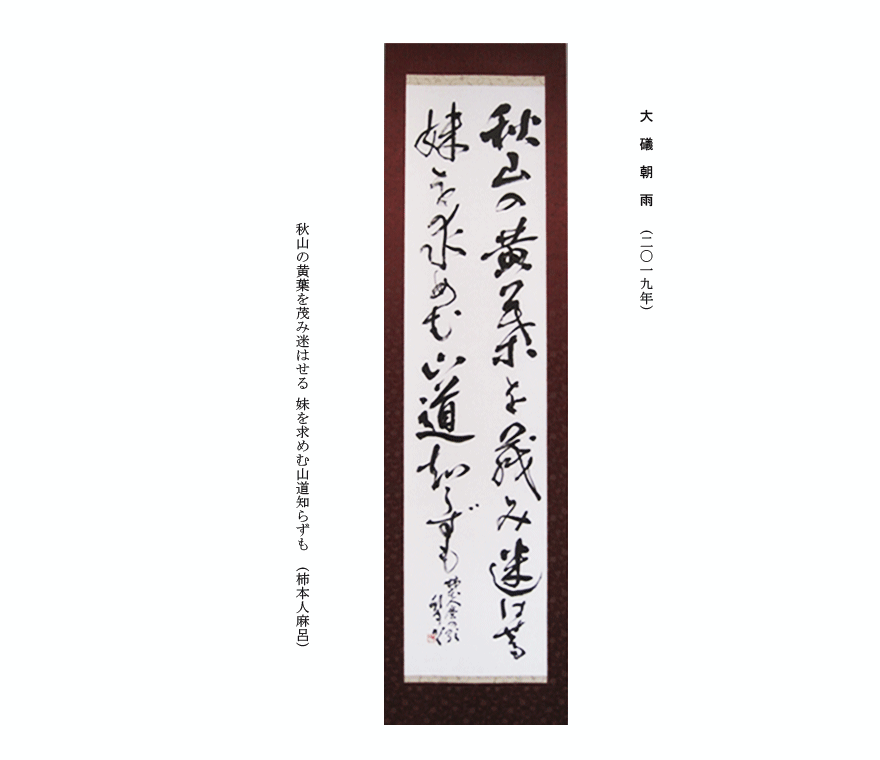 大礒朝雨 （二〇一九年）
秋山の黄葉を茂み迷はせる
妹を求めむ山道知らずも
秋山の黄葉を茂み迷はせる 妹を求めむ山道知らずも （柿本人麻呂）